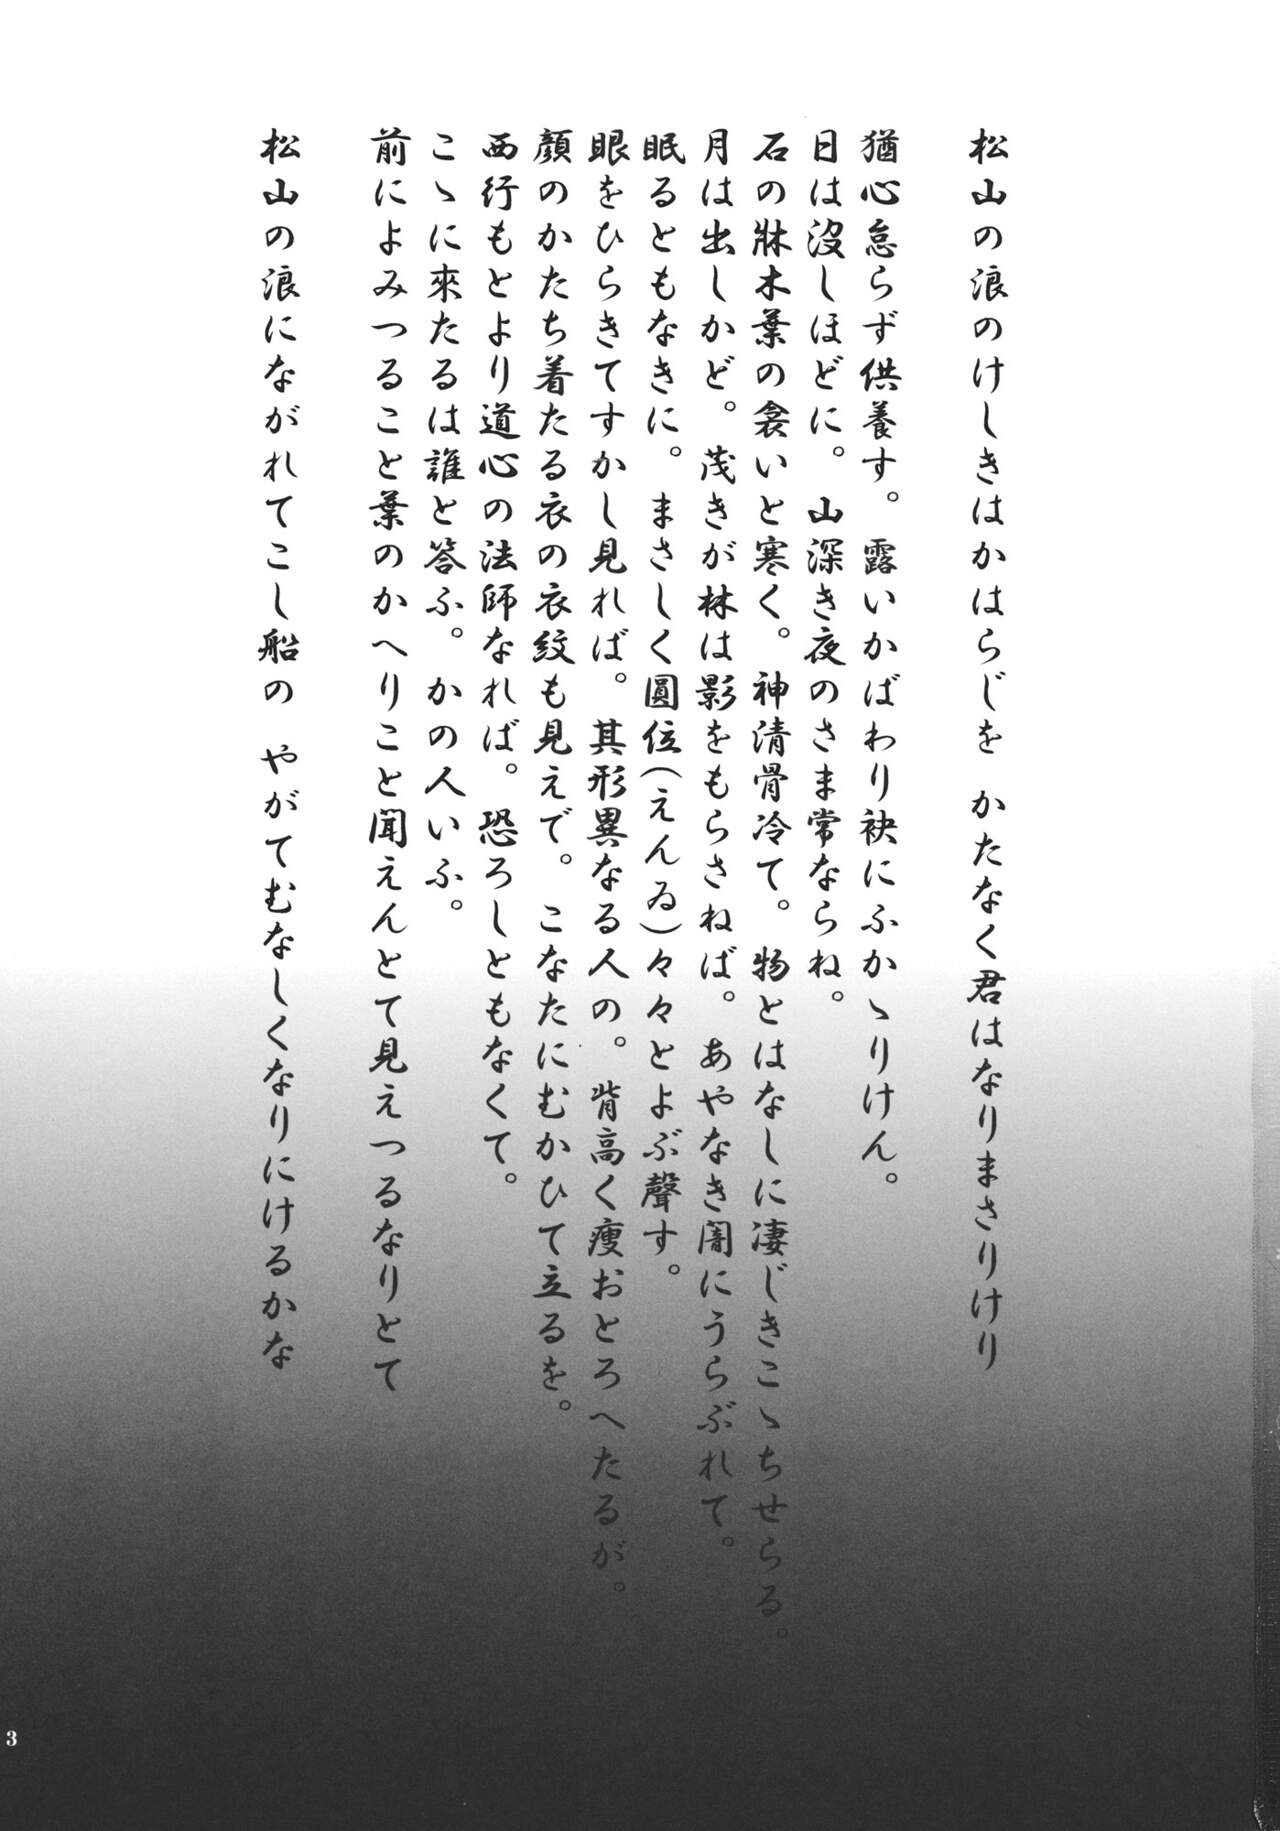 松山の浪のけしきはかはらじを　かたなく君はなりまさりけり
猶心怠らず供養す。露いかばわり袂にふかゝりけん。
日は没しほどに。山深き夜のさま常ならね。
石の牀木葉の衾いと寒く。神清骨冷て。物とはなしに凄じきこゝちせらる。
月は出しかど。茂きが林は影をもらさねば。あやなき闇にうらぶれて。
眠るともなきに。まさしく圓位(えんゐ)々々とよぶ聲す。
眼をひらきてすかし見れば。其形異なる人の。背高く痩おとろへたるが。
顏のかたち着たる衣の衣紋も見えで。こなたにむかひて立るを。
西行もとより道心の法師なれば。恐ろしともなくて。
こゝに來たるは誰と答ふ。かの人いふ。
前によみつること葉のかへりこと聞えんとて見えつるなりとて
松山の浪にながれてこし船の　やがてむなしくなりにけるかな
3